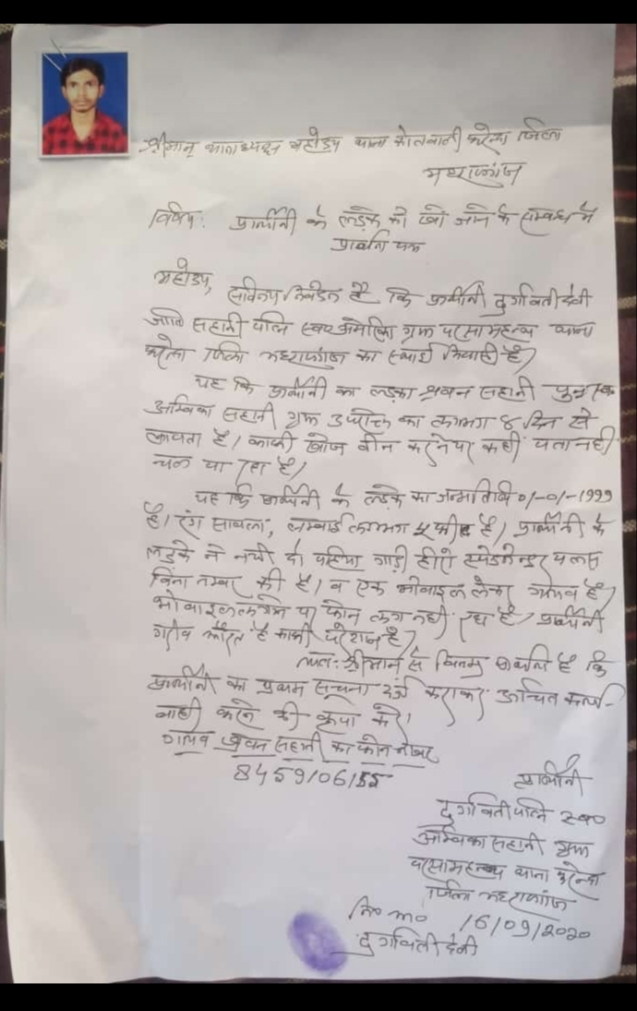 श्रीमान् थानाध्यक्ष महोदय थाना कोतवाली फरेन्दा जिला
महराजगंज
विषय: प्रार्थीनी के लड़के को खो जाने के सम्बन्ध में
प्रार्थना पत्र
महोदय, सविनय निवेदन है कि प्रार्थीनी दुर्गावती देवी
जाति सहानी पत्नि स्व० अम्बिका ग्राम परसामहन्थ थाना
फरेन्दा जिला महराजगंज का स्थाई निवासी है।
यह कि प्रार्थीनी का लड़का श्रवन सहानी पुत्र स्व०
अम्बिका सहानी ग्राम उपरोक्त का लगभग ४ दिन से
लापता है। काफी खोज बीन करने पर कही पता नही
चल पा रहा है।
यह कि प्रार्थीनी के लड़के का जन्मतिथि 01-01-1999
है। रंग सावला, लम्बाई लगभग ५ फीट है। प्रार्थीनी के
लड़के ने नयी दो पहिया गाड़ी हीरो स्पेलेन्डर प्लस
बिना नम्बर की है। व एक मोबाइल लेकर गायब है।
मोबाइल लगाने पर फोन लग नही रहा है। प्रार्थीनी
गरीब औरत है काफी परेशान है।
अत: श्रीमान से विनम्र प्रार्थना है कि
प्रार्थीनी का प्रथम सूचना दर्ज कराकर उचित कार्य-
वाही करने की कृपा करे।
गायब श्रवन सहानी का फोन नम्बर
8459106155
प्रार्थीनी
दुर्गावती पत्नि स्व०
अम्बिका सहानी ग्राम
परसामहन्थ थाना फरेन्दा
जिला महराजगंज
नि० अ० 16/09/2020
दुर्गावती देवी